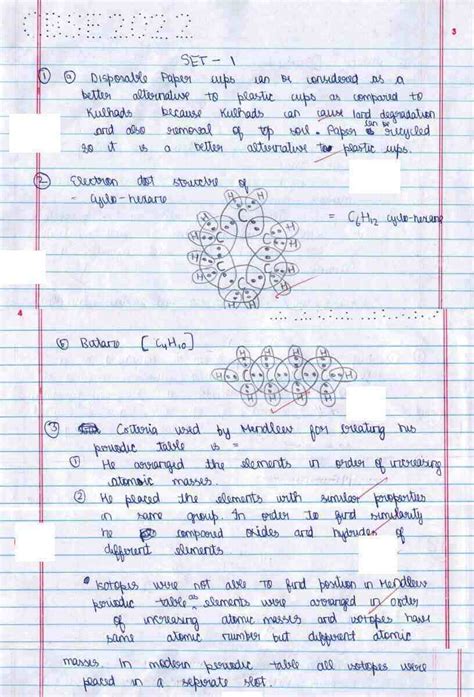 CBSE 2022
3
SET - 1
① ⓐ Disposable Paper cups can be considered as a
better alternative to plastic cups as compared to
Kulhads because Kulhads can cause land degradation
and also removal of top soil. Paper can be recycled
so it is a better alternative to plastic cups.
② Electron dot structure of
- cyclo-hexane
= C6H12 cyclo-hexane
4
ⓑ Butane [C4H10]
③ Criteria used by Mendleev for creating his
periodic table is =
① He arranged the elements in order of increasing
atomic masses.
② He placed the elements with similar properties
in same group. In order to find similarity
he compared oxides and hydrides of
different elements
• Isotopes were not able to find position in Mendleev
periodic table as elements were arranged in order
of increasing atomic masses and isotopes have
same atomic number but different atomic
masses. In modern periodic table all isotopes were
placed in a separate slot.